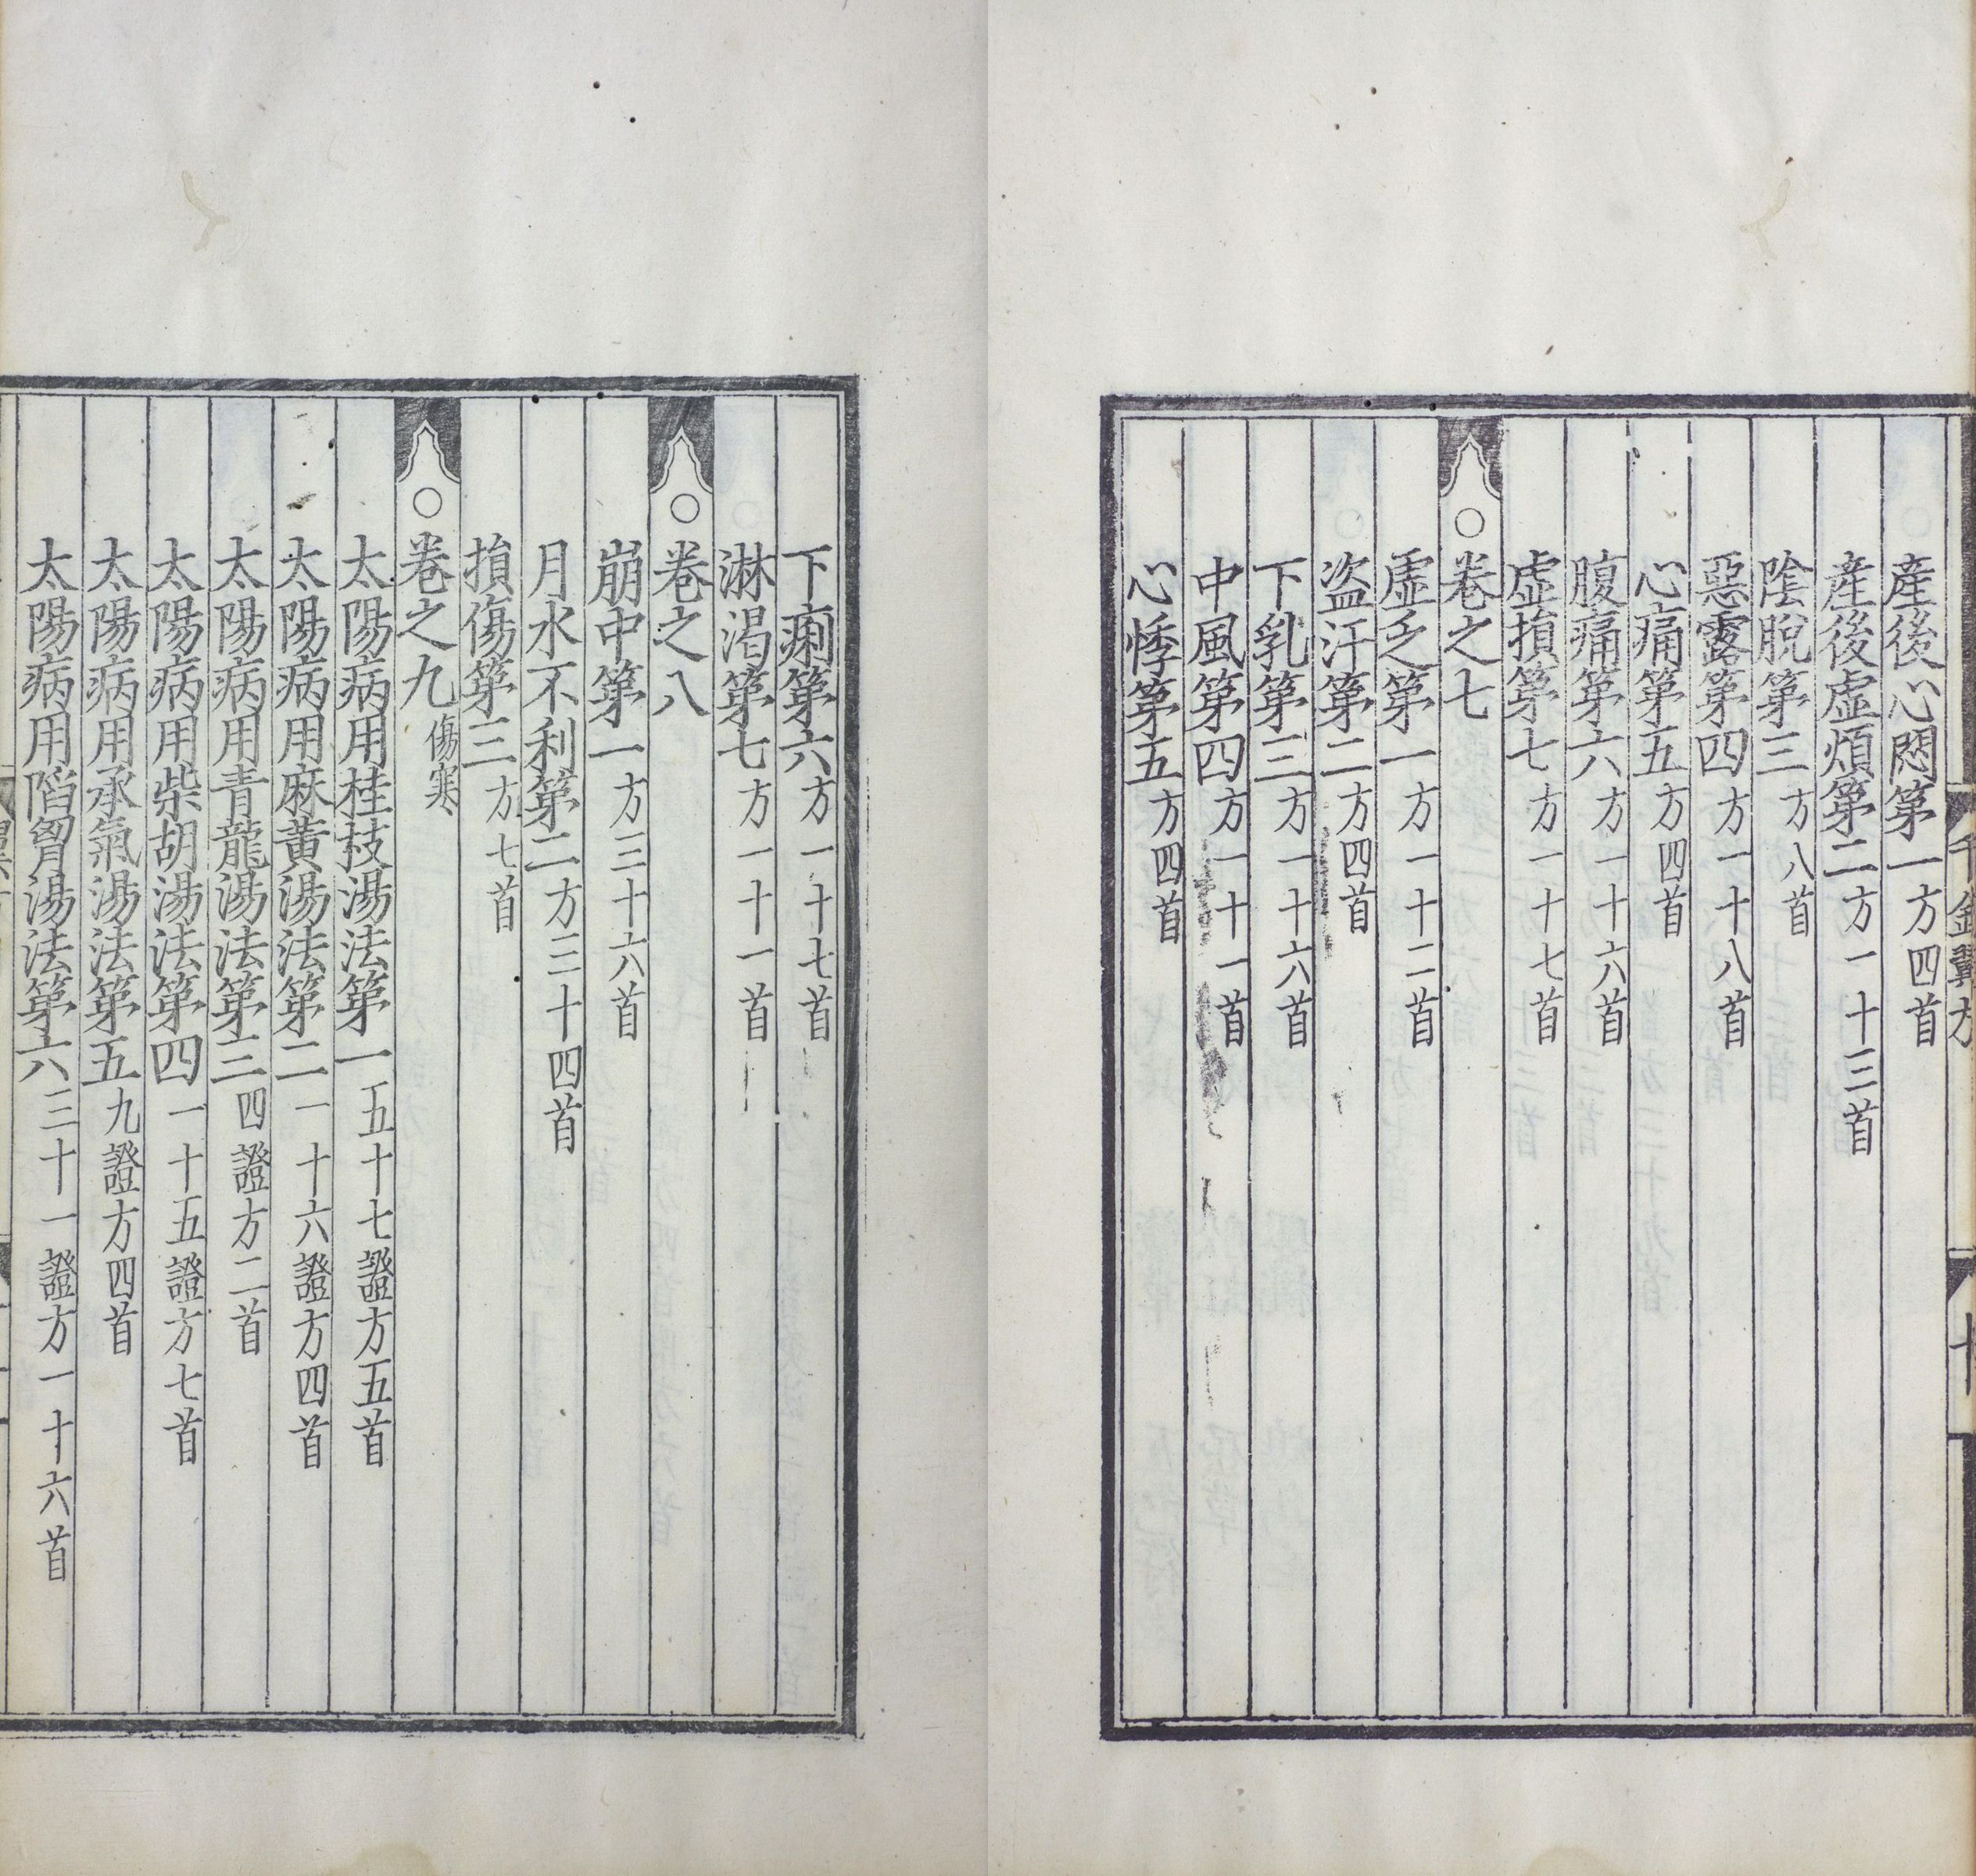 産後心悶第一方四首
産後虛煩第二方一十三首
陰脫第三方八首
惡露第四方一十八首
心痛第五方四首
腹痛第六方一十六首
虛損第七方一十七首
○卷之七
虛乏第一方一十二首
盗汗第二方四首
下乳第三方一十六首
中風第四方一十一首
心悸第五方四首
千金翼方
十
下痢第六方一十七首
淋渴第七方一十一首
○卷之八
崩中第一方三十六首
月水不利第二方三十四首
損傷第三方七首
○卷之九傷寒
太陽病用桂枝湯法第一五十七證方五首
太陽病用麻黃湯法第二一十六證方四首
太陽病用青龍湯法第三四證方二首
太陽病用柴胡湯法第四一十五證方七首
太陽病用承氣湯法第五九證方四首
太陽病用陷胷湯法第六三十一證方一十六首